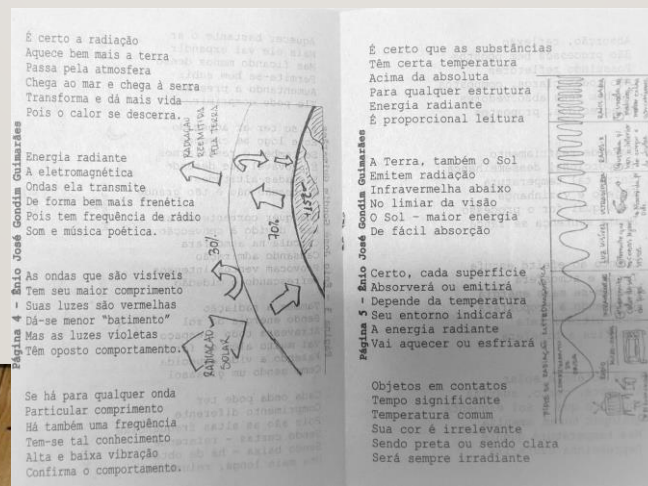 É certo a radiação
Aquece bem mais a terra
Passa pela atmosfera
Chega ao mar e chega à serra
Transforma e dá mais vida
Pois o calor se descerra.
Energia radiante
A eletromagnética
Ondas ela transmite
De forma bem mais frenética
Pois tem frequência de rádio
Som e música poética.
As ondas que são visíveis
Tem seu maior comprimento
Suas luzes são vermelhas
Dá-se menor "batimento"
Mas as luzes violetas
Têm oposto comportamento.
Se há para qualquer onda
Particular comprimento
Há também uma frequência
Tem-se tal conhecimento
Alta e baixa vibração
Confirma o comportamento.
Página 4 - Ênio José Gondim Guimarães
RADIAÇÃO
REEMITIDA
PELA TERRA
30%
70%
+15°
RADIAÇÃO
SOLAR
É certo que as substâncias
Têm certa temperatura
Acima da absoluta
Para qualquer estrutura
Energia radiante
É proporcional leitura
A Terra, também o Sol
Emitem radiação
Infravermelha abaixo
No limiar da visão
O Sol - maior energia
De fácil absorção
Certo, cada superfície
Absorverá ou emitirá
Depende da temperatura
Seu entorno indicará
A energia radiante
Vai aquecer ou esfriará
Objetos em contatos
Tempo significante
Temperatura comum
Sua cor é irrelevante
Sendo preta ou sendo clara
Será sempre irradiante
Página 5 - Ênio José Gondim Guimarães
TIPOS DE RADIAÇÃO ELETROMAGNÉTICA
COMPRIMENTO
DE ONDA
LUZ VISÍVEL
ULTRAVIOLETA
RAIOS X
RAIOS GAMA